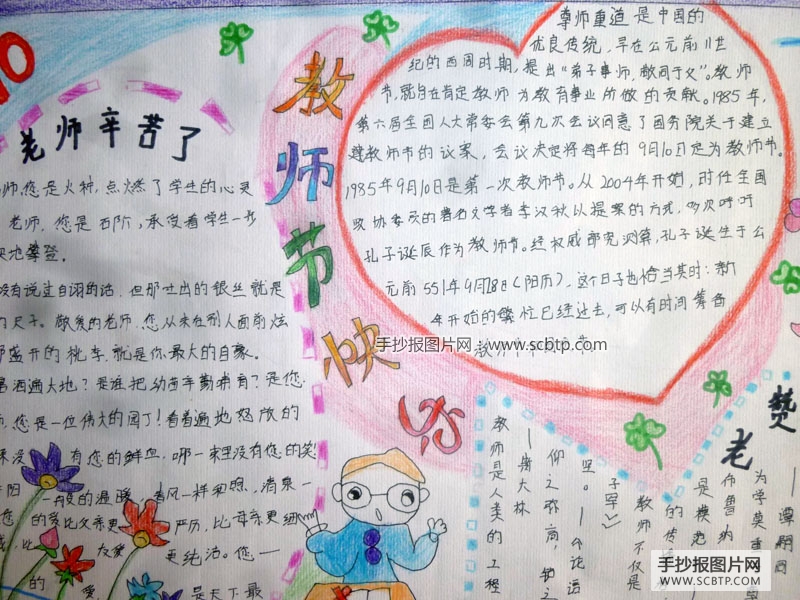 10
老师辛苦了
师,您是火种,点燃了学生的心灵
老师,您是石阶,承受着学生一步
地攀登。
没有说过自诩的话,但那
的银丝就是
的尺子。敬爱的老师,您从来在别人面前炫
盛开的桃李,就是你最大的自豪。
洒遍大地?是谁把幼苗辛勤
?是您
您是一位伟大的园丁!看着遍地怒放的
有您的鲜血,哪一
里没有您的笑
般的温暖,春风一样和煦,清泉一
您的爱比父亲更
严厉,比母亲更细
友爱
更纯洁。您—
的
爱
是天下最
教师节快乐
尊师重道是中国的
优良传统,早在公元前11世
纪的西周时期,提出“弟子事师,敬同于父”。教师
节,就旨在肯定教师为教育事业所做的贡献。1985年,
第六届全国人大常委会第九次会议同意了国务院关于建立
建教师节的议案,会议决定将每年的9月10日定为教师节。
1985年9月10日是第一次教师节。从2004年开始,时任全国
政协委员的著名文学者李汉秋以提案的方式,多次呼吁
孔子诞辰作为教师节。经权威部
测算,孔子诞生于公
元前551年9月28日(阳历),这个日子也恰当其时:新
年开始的繁忙已经过去,可以有时间筹备
教师
手抄报图片网 www.scbtp.com
赞
老
—谭嗣同
为学莫重
布鲁纳
是模范
的传
教师不仅是
《子罕》
坚。—
仰之弥高,钻之
—斯大林
教师是人类的工程
手抄报图片网
WWW.SCBTP.COM